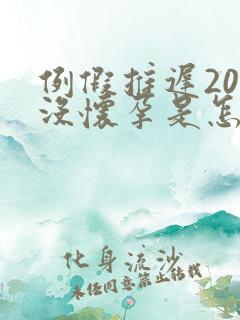 例假推迟20
没怀孕是怎
化身流沙
未经同意禁止转载